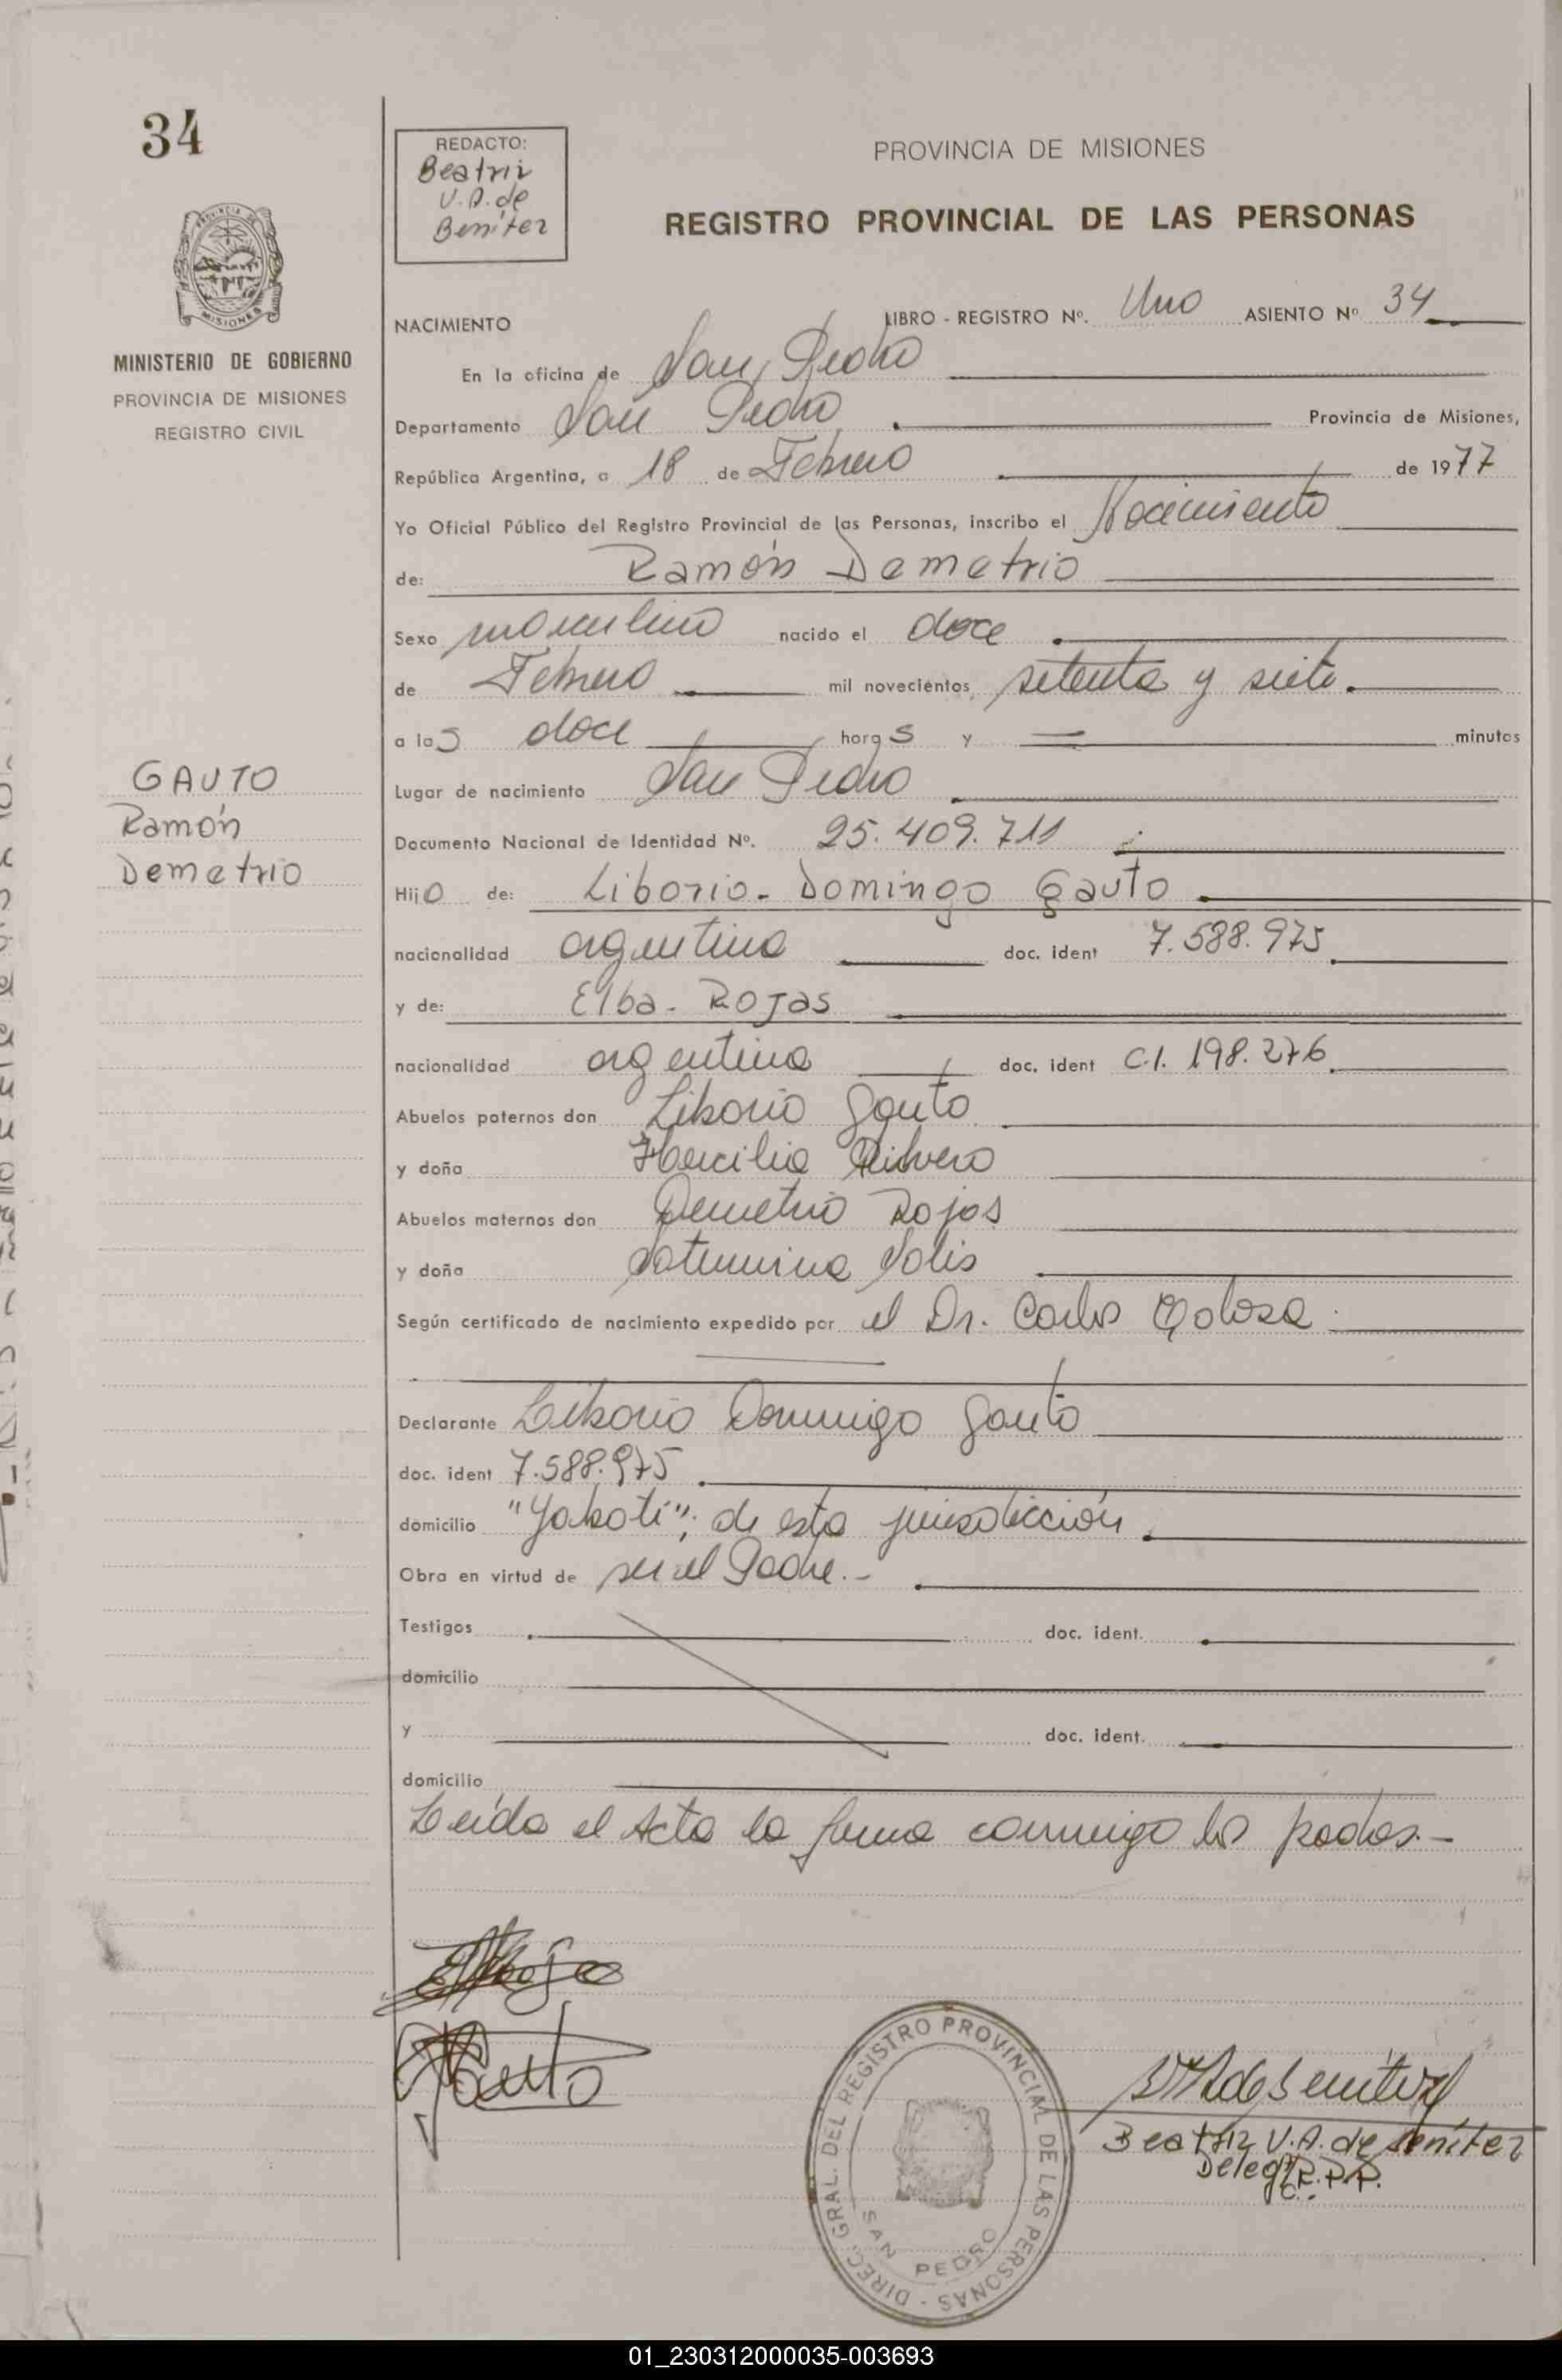 34
REDACTO:
Beatriz
V.A. de
Benítez
PROVINCIA DE MISIONES
REGISTRO PROVINCIAL DE LAS PERSONAS
PROVINCIA DE
MISIONES
MINISTERIO DE GOBIERNO
PROVINCIA DE MISIONES
REGISTRO CIVIL
NACIMIENTO LIBRO - REGISTRO Nº. Uno ASIENTO Nº 34
En la oficina de San Pedro
Departamento San Pedro Provincia de Misiones,
República Argentina, a 18 de Febrero de 1977
Yo Oficial Público del Registro Provincial de las Personas, inscribo el Nacimiento
de: Ramón Demetrio
Sexo masculino nacido el doce
de Febrero mil novecientos setenta y siete.
a las doce horas y = minutos
GAUTO
Ramón
Demetrio
Lugar de nacimiento San Pedro
Documento Nacional de Identidad Nº. 25.409.711
Hijo de: Liborio - Domingo Gauto
nacionalidad argentina doc. ident 7.588.975
y de: Elba - Rojas
nacionalidad argentina doc. ident C.I. 198.276
Abuelos paternos don Liborio Gauto
y doña
Abuelos maternos don Demetrio Rojas
y doña Saturnina Solis
Según certificado de nacimiento expedido por el Dr. Carlos
Declarante Liborio Domingo Gauto
doc. ident 7.588.975
domicilio "Yaboti", de esta jurisdicción
Obra en virtud de ser el Padre.-
Testigos doc. ident.
domicilio
y doc. ident.
domicilio
Leída el Acta la firma conmigo los padres.-
ERojas
Gauto
DIREC. GRAL. DEL REGISTRO PROVINCIAL DE LAS PERSONAS -
SAN PEDRO
BVAdeBenitez
Beatriz V.A. de Benítez
Deleg. R.P.P.
01_230312000035-003693